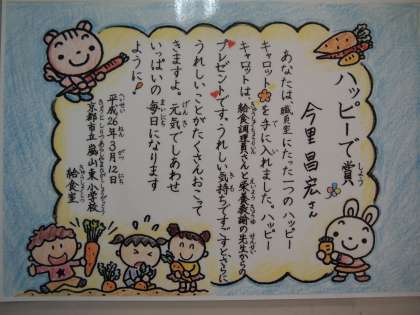 ハッピーで賞
今里 昌宏さん
あなたは職員室にたった一つのハッピー
キャロットを手にいれました。ハッピー
キャロットは、給食調理員さんと栄養教諭の先生からの
プレゼントです。うれしい気持ちですごすとさらに
うれしいことがたくさんおこって
きますよ。元気でしあわせ
いっぱいの毎日になります
ように。
平成26年3月12日
京都市立嵐山東小学校
給食室